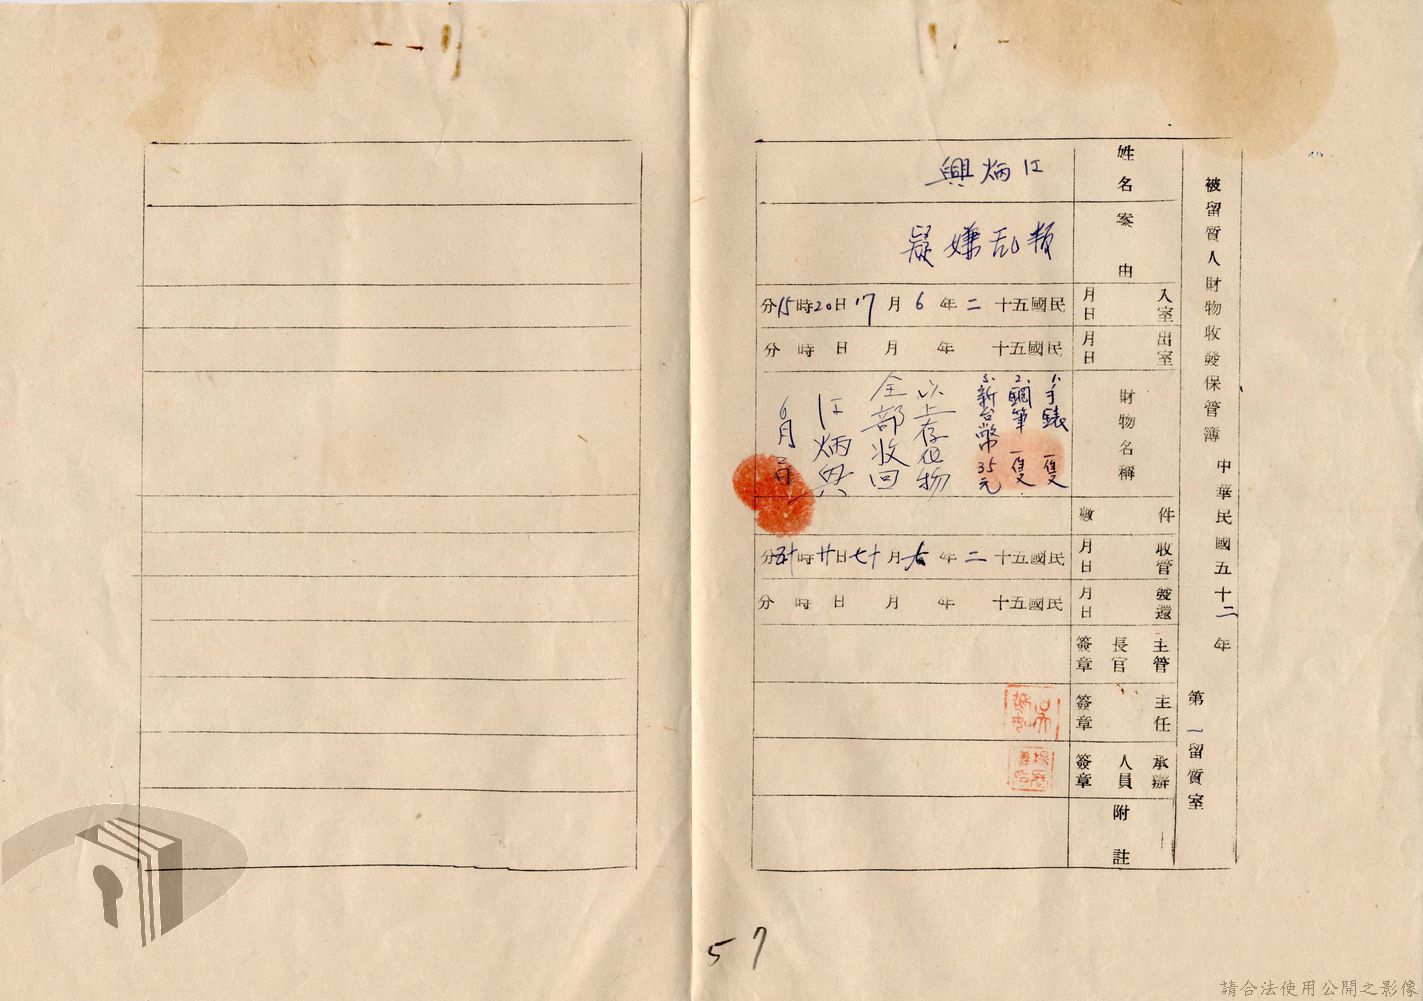 被留質人財物收發保管簿 中華民國五十二年
第一留質室
姓名 江炳興
案由 叛乱嫌疑
入室月日 民國五十二年6月17日20時15分
出室月日 民國五十 年 月 日 時 分
財物名稱
1.手錶 一隻
2.鋼筆 一隻
3.新台幣35元
以上存位物
全部收回
江炳興
6月
件數
收管月日 民國五十二年六月十七日廿時十五分
發還月日 民國五十 年 月 日 時 分
主管長官簽章
主任簽章
承辦人員簽章
附註
57
請合法使用公開之影像